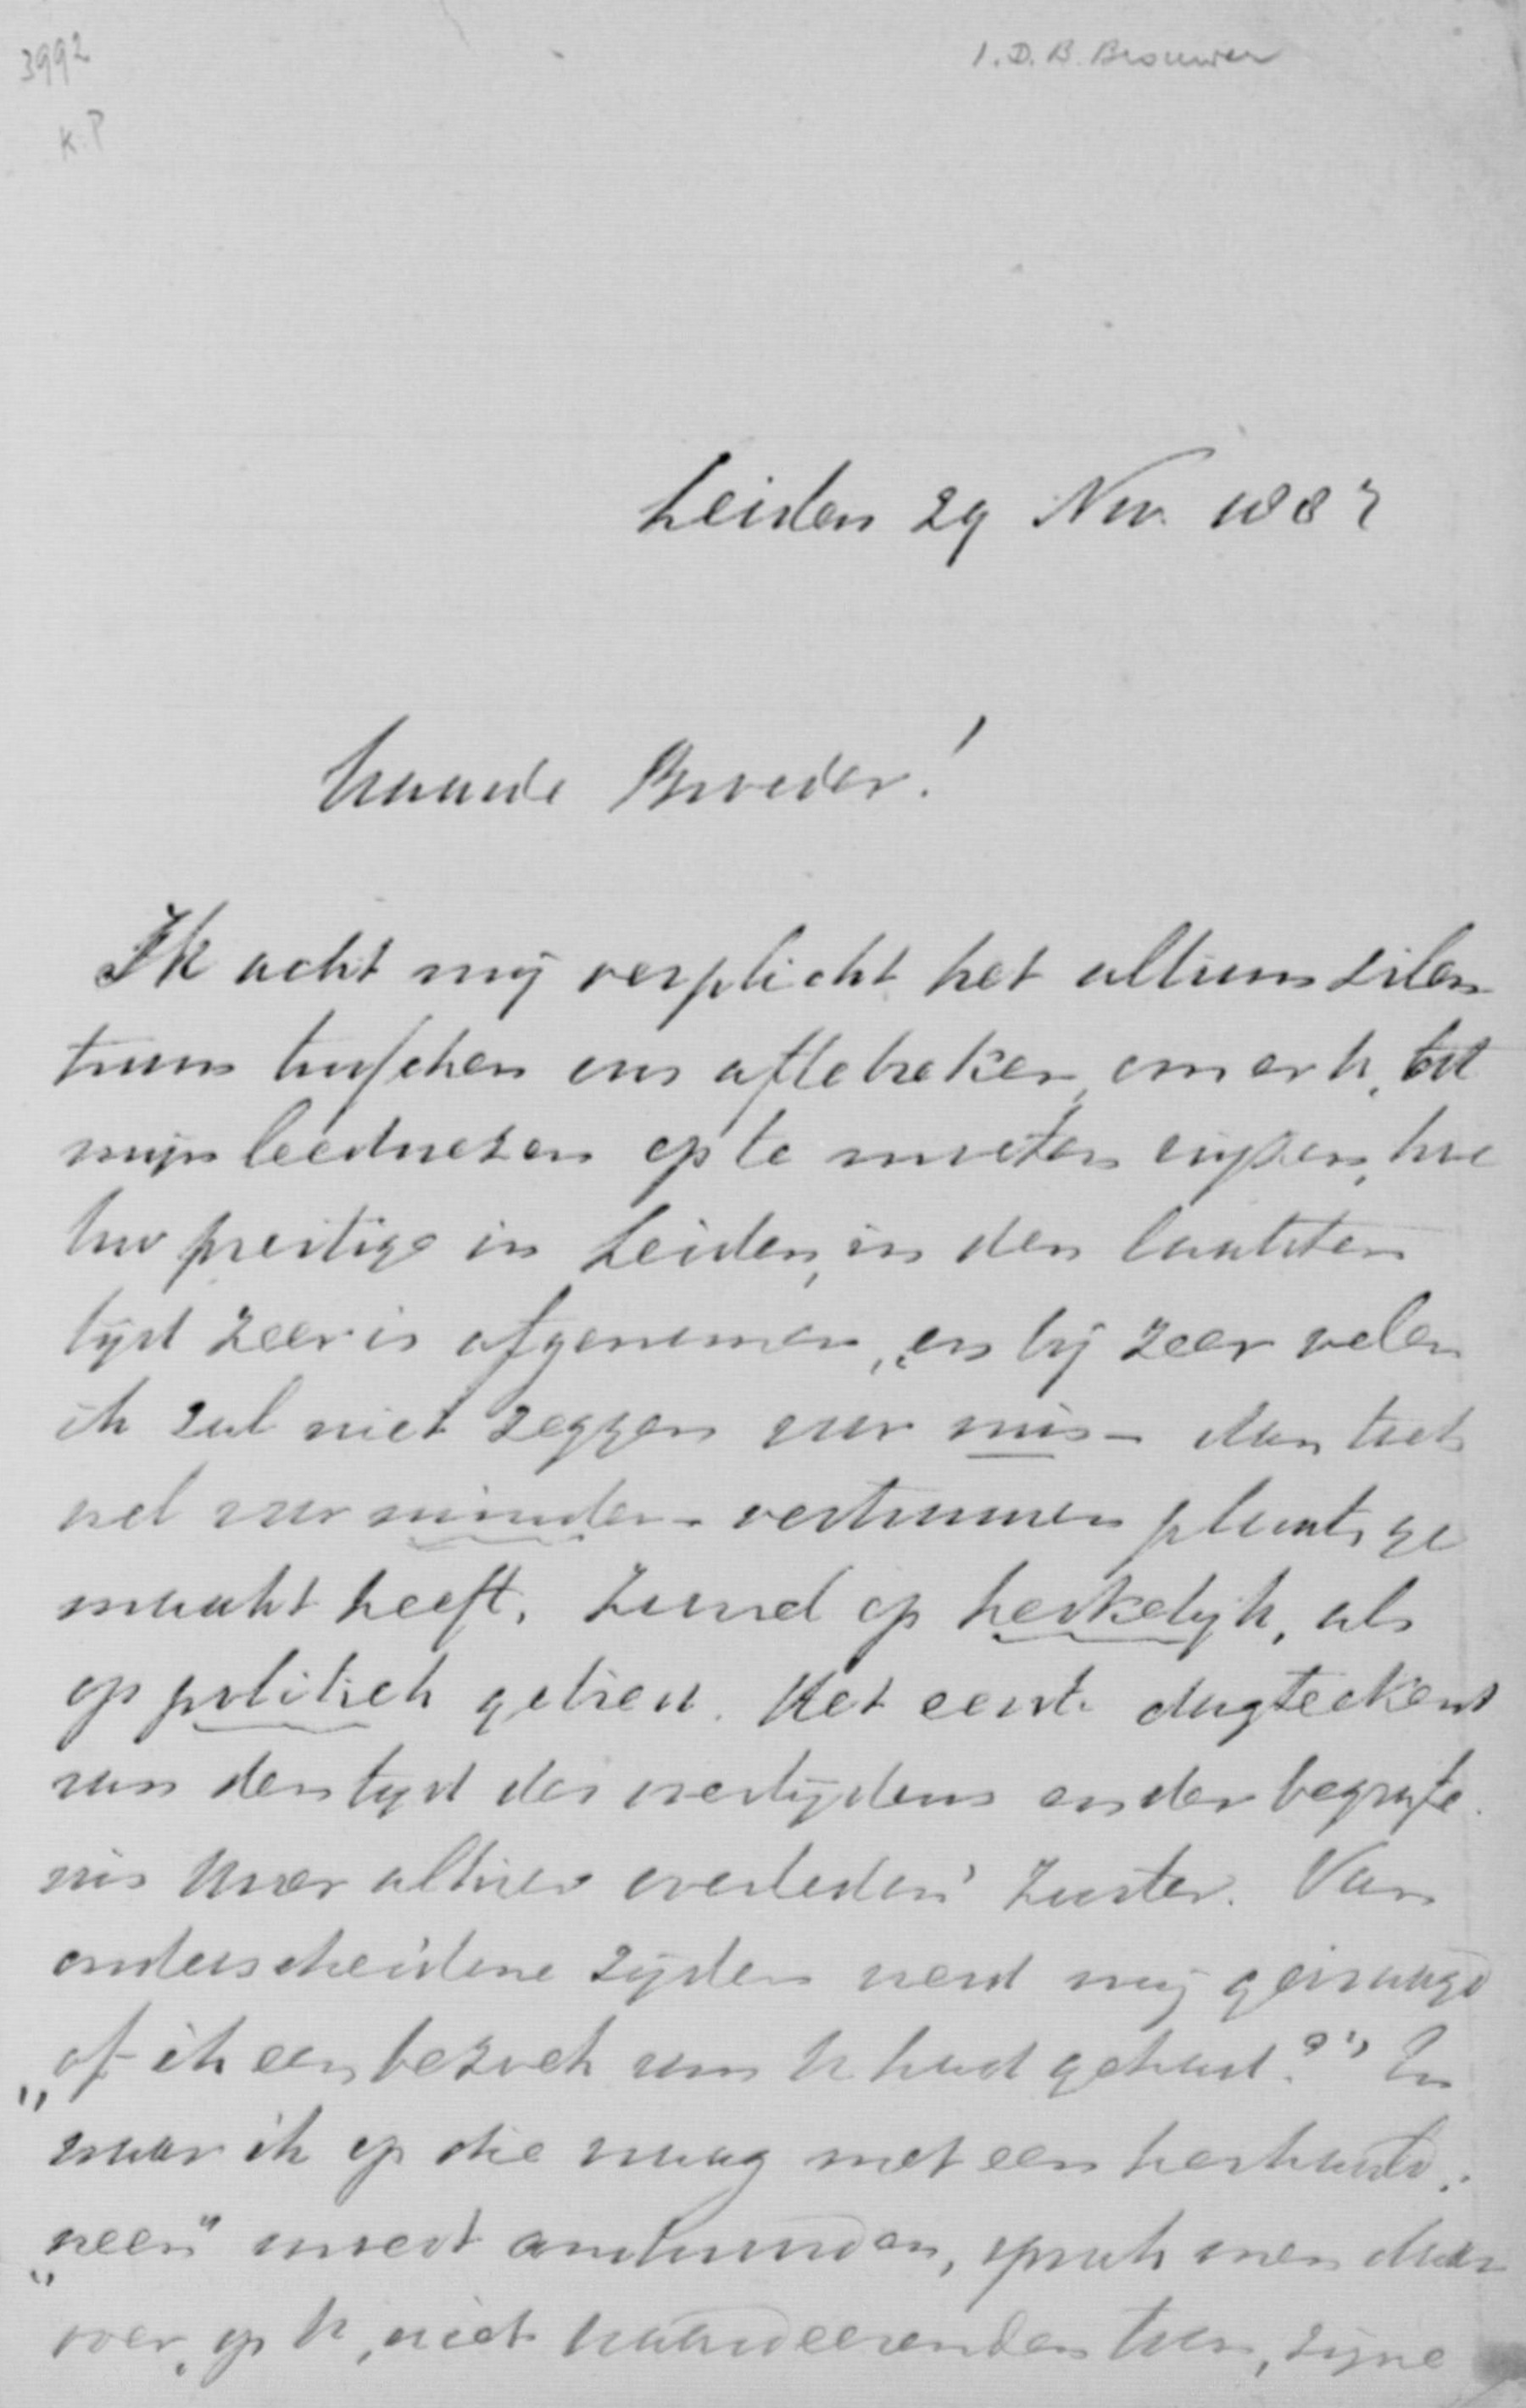 3992
I.D.B. Brouwer
K.P
Leiden 29 Nov. 188
Waarde Broeder!
Ik acht mij verplicht het altum silen
tium tusschen ons aftebreken, om er U, tot
mijn leedwezen op te moeten wijzen, hoe
Uw prestige in Leiden, in den laatsten
tijd zeer is afgenomen, en bij zeer velen
ik zal niet zeggen voor mis- dan toch
wel voor minder- vertrouwen plaats ge
maakt heeft. Zoowel op kerkelijk, als
op politiek gebied. Het eerste dagteekent
van den tijd des overlijdens en der begrafe
nis Uwer alhier overleden zuster. Van
onderscheidene zijden werd mij gevraagd
„of ik een bezoek van U had gehad?” En
waar ik op die vraag met een herhaald
„neen” moest antwoorden, sprak men daar
over, op U, niet waardeerenden toon, zijne